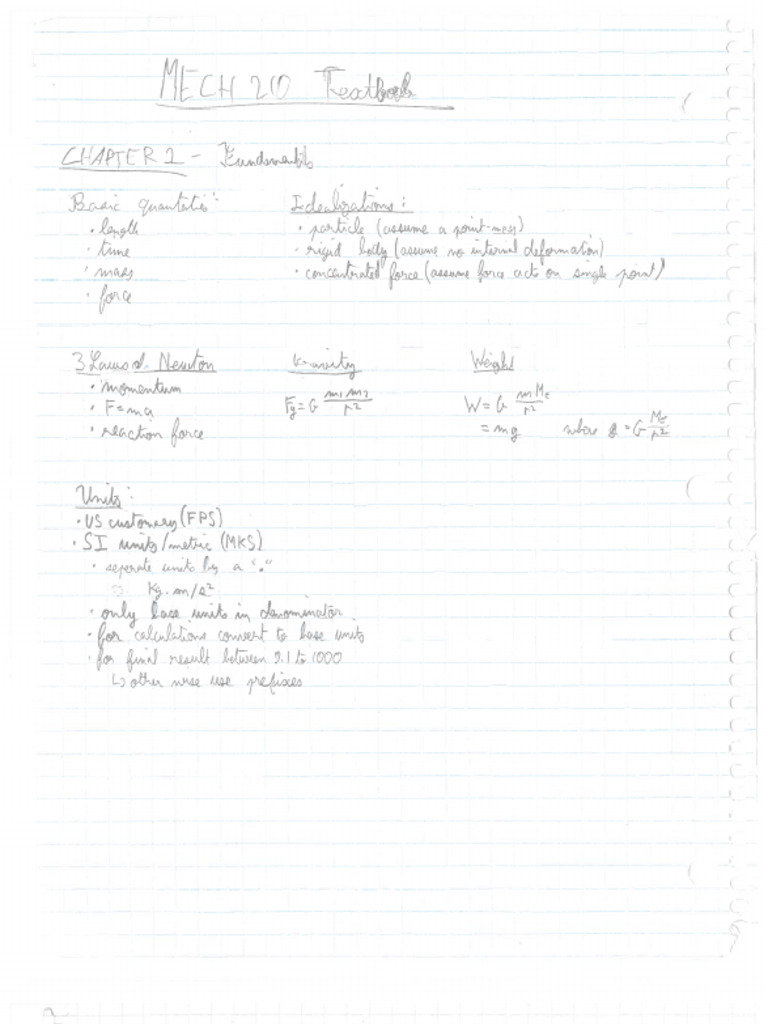 MECH 210 Textbook
CHAPTER 1 - Fundamentals
Basic quantities:
• length
• time
• mass
• force
Idealizations:
• particle (assume a point-mass)
• rigid body (assume no internal deformation)
• concentrated force (assume force acts on single point)
3 Laws of Newton
• momentum
• F=ma
• reaction force
Gravity
Fg = G m1 m2 / r²
Weight
W = G m Me / r²
= mg where g = G Me / r²
Units:
• US customary (FPS)
• SI units/metric (MKS)
• seperate units by a "."
Kg.m/s²
• only base units in denominator
• for calculations convert to base units
• for final result between 0.1 to 1000
↳ other wise use prefixes